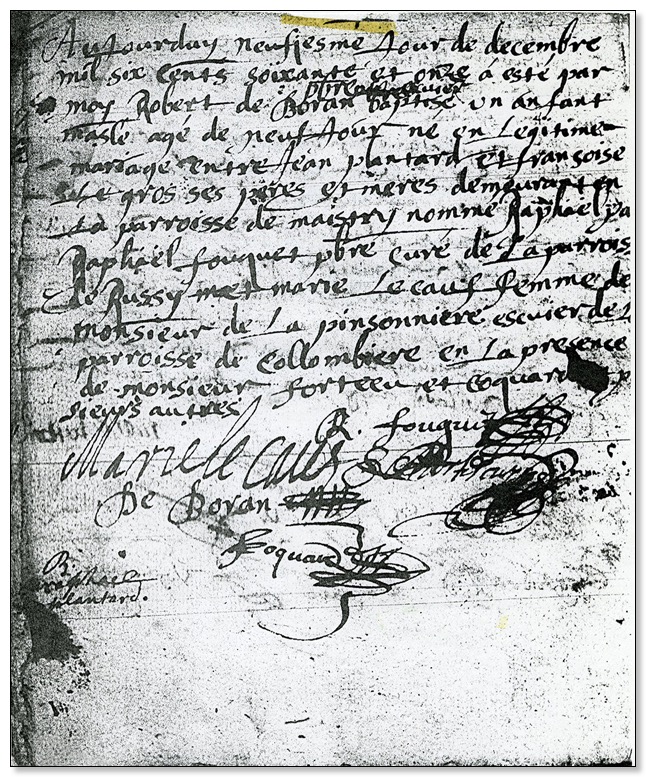 Aujourduy neufiesme Jour de decembre
mil six Cents soixante et onze a esté par
pbre
moy Robert de Boran baptise un anfant
masle agé de neuf Jour né en Legitime
mariage entre Jean plantard et françoise
Le gros ses pères et mères demeurant en
La parroisse de maistry nommé Raphaël pa
Raphaël fouquet pbre Curé de La parrois
de Russy et marie Le cauf femme de
monsieur de La pinsonniere escuier de L
parroisse de Collombiere en La presence
de monsieur forteeu et Coquard p
sieurs autres
R. fouquet
Marie le cauf
De Boran
Coquard
B
raphael
plantard.